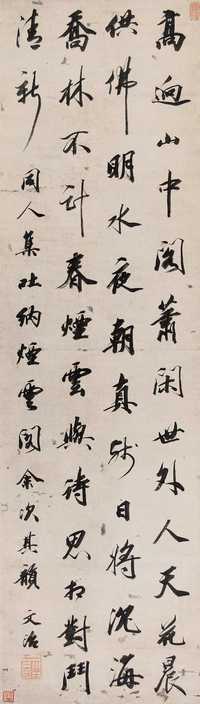 高迥山中閣蕭閑世外人天花晨
供佛明水夜朝真殘日將沉海
喬林不計春煙雲與詩思相對鬥
清新 同人集吐納煙雲閣余次其韻 文治